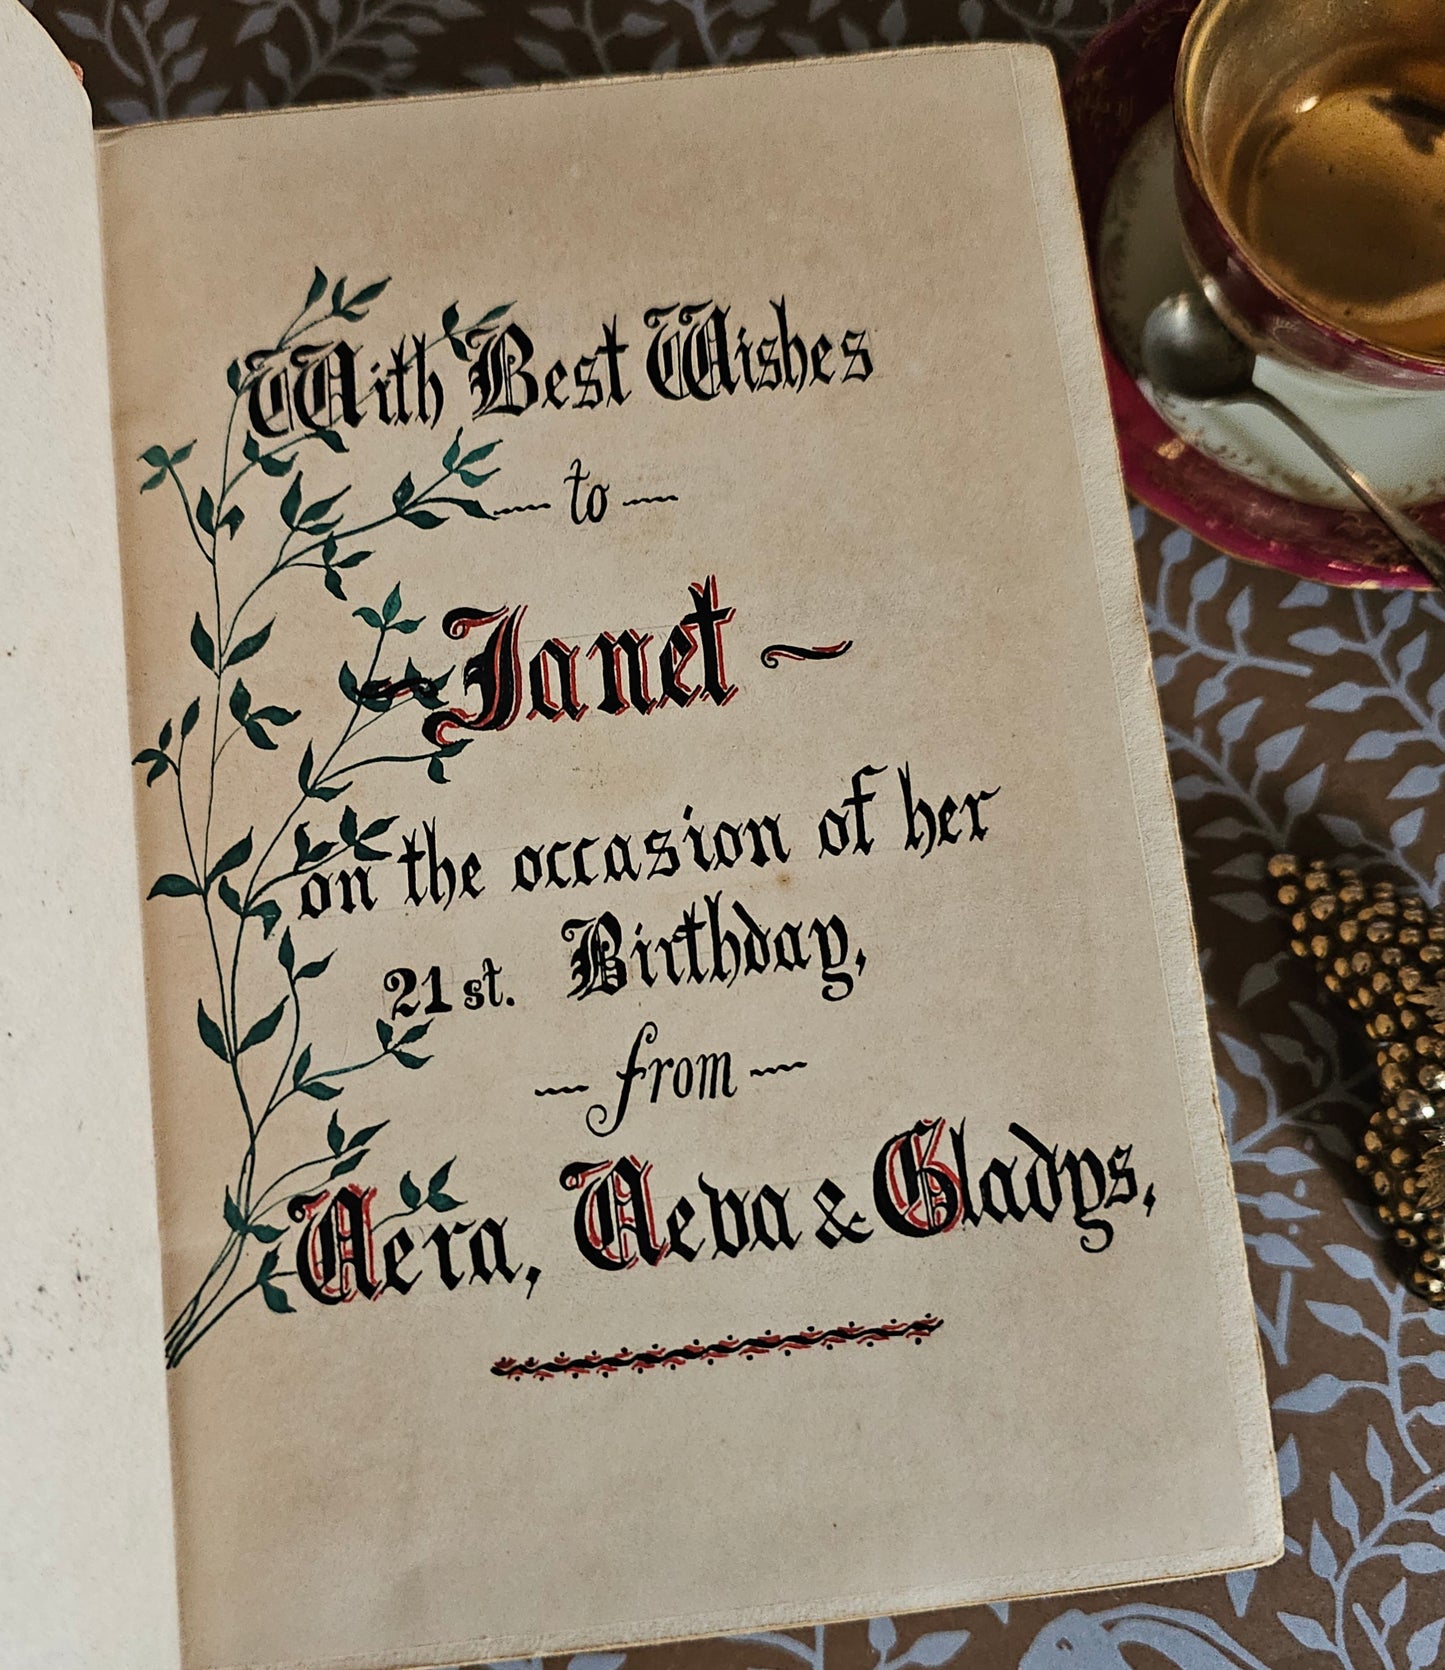 With Best Wishes
— to —
~ Janet ~
on the occasion of her
21st. Birthday,
— from —
Vera, Veva & Gladys,